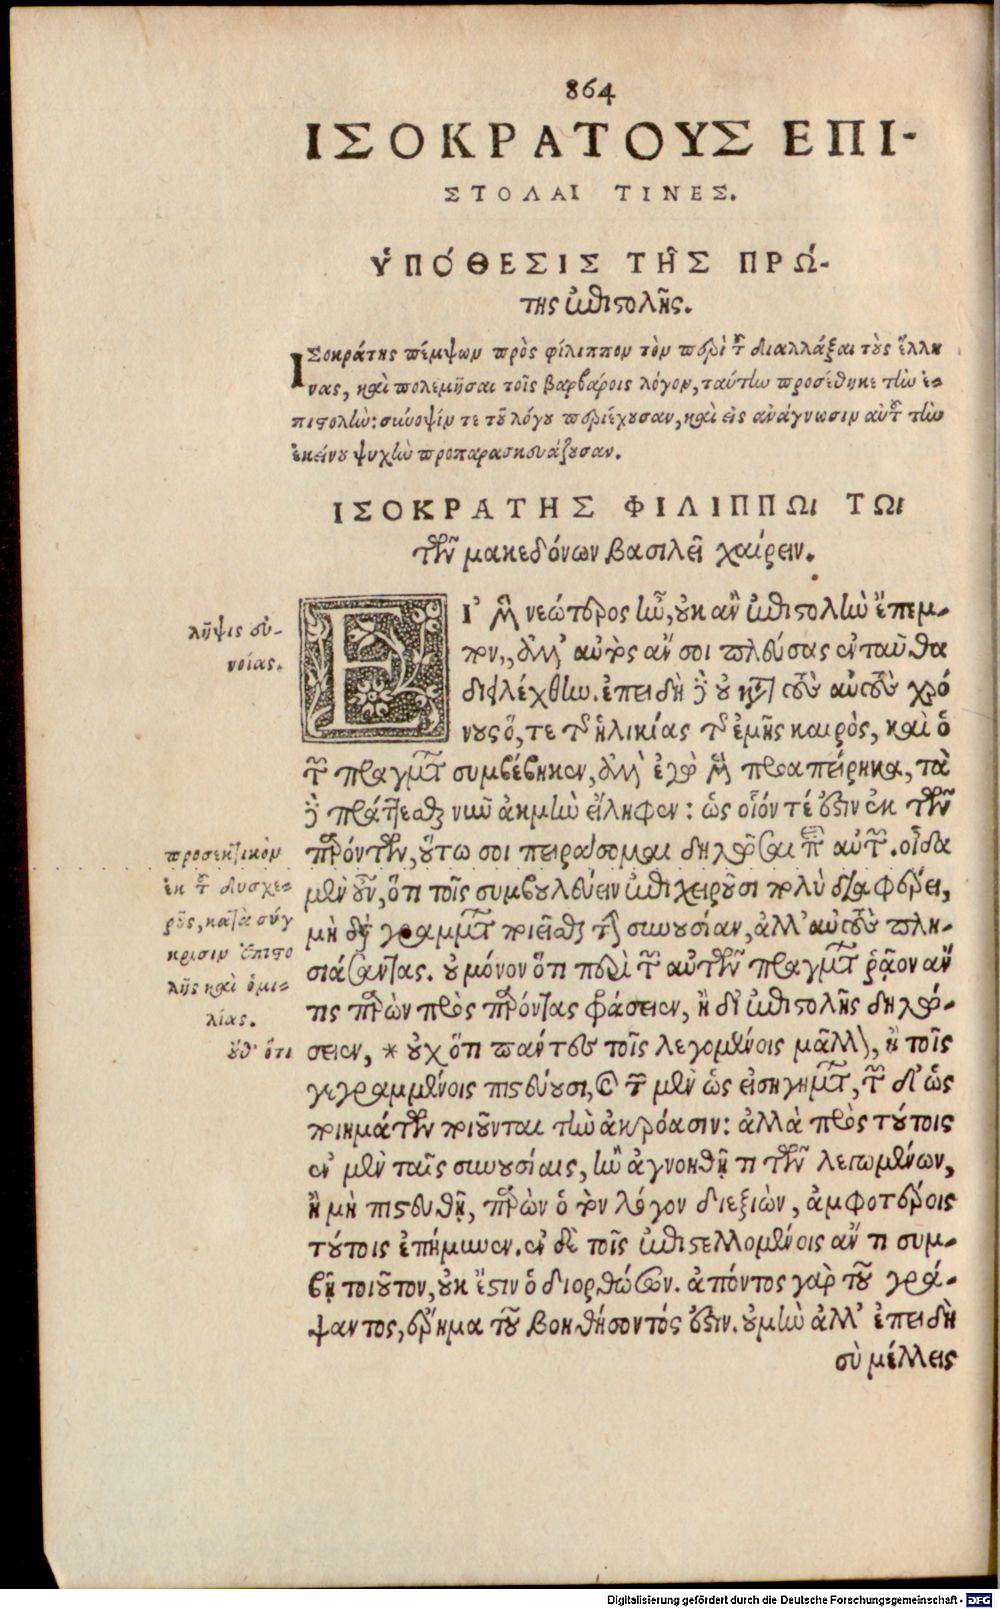 864
ΙΣΟΚΡΑΤΟΥΣ ΕΠΙ-
ΣΤΟΛΑΙ ΤΙΝΕΣ.
ΥΠΟΘΕΣΙΣ ΤΗΣ ΠΡΩ-
της ἐπιστολῆς.
ΙΣοκράτης πέμψων πρὸς φίλιππον τὸν περὶ τοῦ διαλλάξαι τοὺς ἕλλη
νας, καὶ πολεμῆσαι τοῖς βαρβάροις λόγον, ταύτην προσέθηκε τὴν ἐ-
πιστολὴν: σύνοψίν τε τοῦ λόγου περιέχουσαν, καὶ εἰς ἀνάγνωσιν αὐτοῦ τὴν
ἐκείνου ψυχὴν προπαρασκευάζουσαν.
ΙΣΟΚΡΑΤΗΣ ΦΙΛΙΠΠΩι ΤΩι
τῶν μακεδόνων βασιλεῖ χαίρειν.
λῆψις συ-
νοίας.
ΕΙ' μὲν νεώτερος ἦν, οὐκ ἂν ἐπιστολὴν ἔπεμ-
πον, ἀλλ' αὐτὸς ἄν σοι πλεύσας ἐνταῦθα
διελέχθην. ἐπειδὴ δὲ οὐ κατὰ τοὺς αὐτοὺς χρό
νους ὅ, τε τῆς ἡλικίας τῆς ἐμῆς καιρὸς, καὶ ὁ
τῶν πραγμάτων συμβέβηκεν, ἀλλ' ἐγὼ μὲν προαπείρηκα, τὰ
δὲ πράττεσθαι νῦν ἀκμὴν εἴληφεν: ὡς οἷόν τέ ἐστιν ἐκ τῶν
προσεκτικὸν
παρόντων, οὕτω σοι πειράσομαι δηλῶσαι περὶ αὐτῶν. οἶδα
ἐκ τοῦ δυσχε-
μὲν οὖν, ὅτι τοῖς συμβουλεύειν ἐπιχειροῦσι πολὺ διαφέρει,
ροῦς, κατὰ σύγ
μὴ διὰ γραμμάτων ποιεῖσθαι τὴν συνουσίαν, ἀλλ' αὐτοὺς πλη-
κρισιν ἐπιστο
σιάσαντας. οὐ μόνον ὅτι περὶ τῶν αὐτῶν πραγμάτων ῥᾷον ἄν
λῆς καὶ ὁμι-
τις παρὼν πρὸς παρόντας φράσειεν, ἢ δι' ἐπιστολῆς δηλώ-
λίας.
οὐδ' ὅτι
σειεν, * οὐχ ὅτι πάντες τοῖς λεγομένοις μᾶλλον, ἢ τοῖς
γεγραμμένοις πιστεύουσι, καὶ τῶν μὲν ὡς εἰσηγημάτων, τῶν δ' ὡς
ποιημάτων ποιοῦνται τὴν ἀκρόασιν: ἀλλὰ πρὸς τούτοις
ἐν μὲν ταῖς συνουσίαις, ἢν ἀγνοηθῇ τι τῶν λεγομένων,
ἢ μὴ πιστευθῇ, παρὼν ὁ τὸν λόγον διεξιὼν, ἀμφοτέροις
τούτοις ἐπήμυνεν. ἐν δὲ τοῖς ἐπιστελλομένοις ἄν τι συμ-
βῇ τοιοῦτον, οὐκ ἔστιν ὁ διορθώσων. ἀπόντος γὰρ τοῦ γρά-
ψαντος, ἔρημα τοῦ βοηθήσοντός ἐστιν. οὐ μὴν ἀλλ' ἐπειδὴ
σὺ μέλλεις
Digitalisierung gefördert durch die Deutsche Forschungsgemeinschaft - DFG